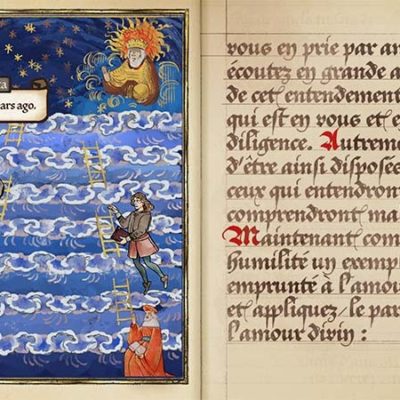 ars ago.
vous en prie par am
écoutez en grande a
de cet entendement
qui est en vous et e
diligence. Autreme
d'être ainsi disposés
ceux qui entendront
comprendront ma
Maintenant com
humilité un exempl
emprunté à l'amou
et appliquez-le par
l'amour divin :